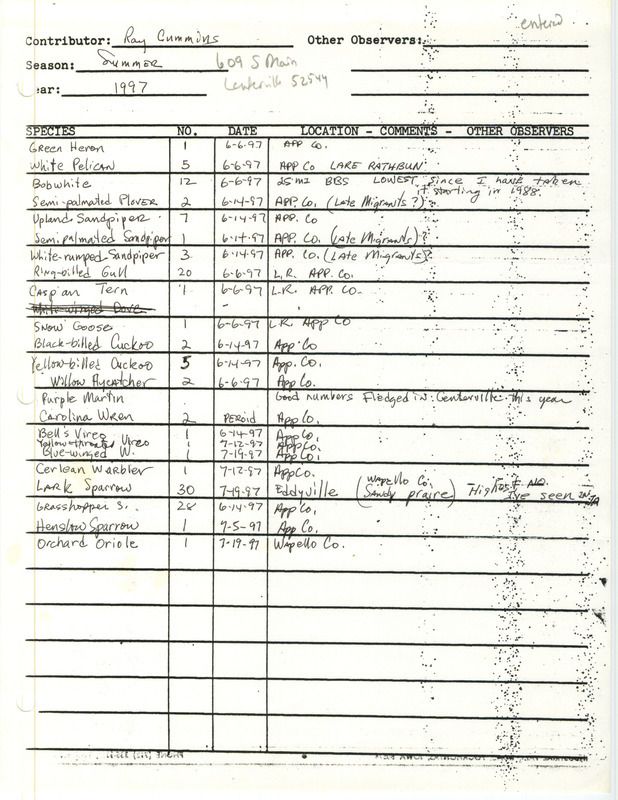 entered
Contributor: Ray Cummins Other Observers:
Season: Summer 609 S Main
ear: 1997 Centerville 52544
SPECIES NO. DATE LOCATION - COMMENTS - OTHER OBSERVERS
Green Heron 1 6-6-97 APP Co.
White Pelican 5 6-6-97 APP Co LAKE RATHBUN
Bobwhite 12 6-6-97 25 mi BBS LOWEST since I have taken
it starting in 1988.
Semi-palmated Plover 2 6-14-97 APP. Co. (Late Migrants?)?
Upland Sandpiper 7 6-14-97 APP. Co
Semipalmated Sandpiper 1 6-14-97 APP. Co. (Late Migrants)?
White-rumped Sandpiper 3 6-14-97 APP. Co. (Late Migrants)?
Ring-billed Gull 20 6-6-97 L.R. APP. Co.
Caspian Tern 1 6-6-97 L.R. APP. Co.
White-winged Dove -
Snow Goose 1 6-6-97 L.R. APP Co
Black-billed Cuckoo 2 6-14-97 App. Co
Yellow-billed Cuckoo 5 6-14-97 App. Co.
Willow Flycatcher 2 6-6-97 App Co.
Purple Martin Good numbers Fledged in Centerville this year
Carolina Wren 2 PEROID App Co.
Bell's Vireo 1 6-14-97 App Co.
Yellow-throated Vireo 1 7-12-97 App Co.
Blue-winged W. 1 7-19-97 App Co.
Cerulean Warbler 1 7-12-97 App Co.
LARK Sparrow 30 7-19-97 Eddyville (Wapello Co. Sandy praire) Highest no. I've seen in IA
Grasshopper S. 28 6-14-97 App Co.
Henslow Sparrow 1 7-5-97 App Co.
Orchard Oriole 1 7-19-97 Wapello Co.